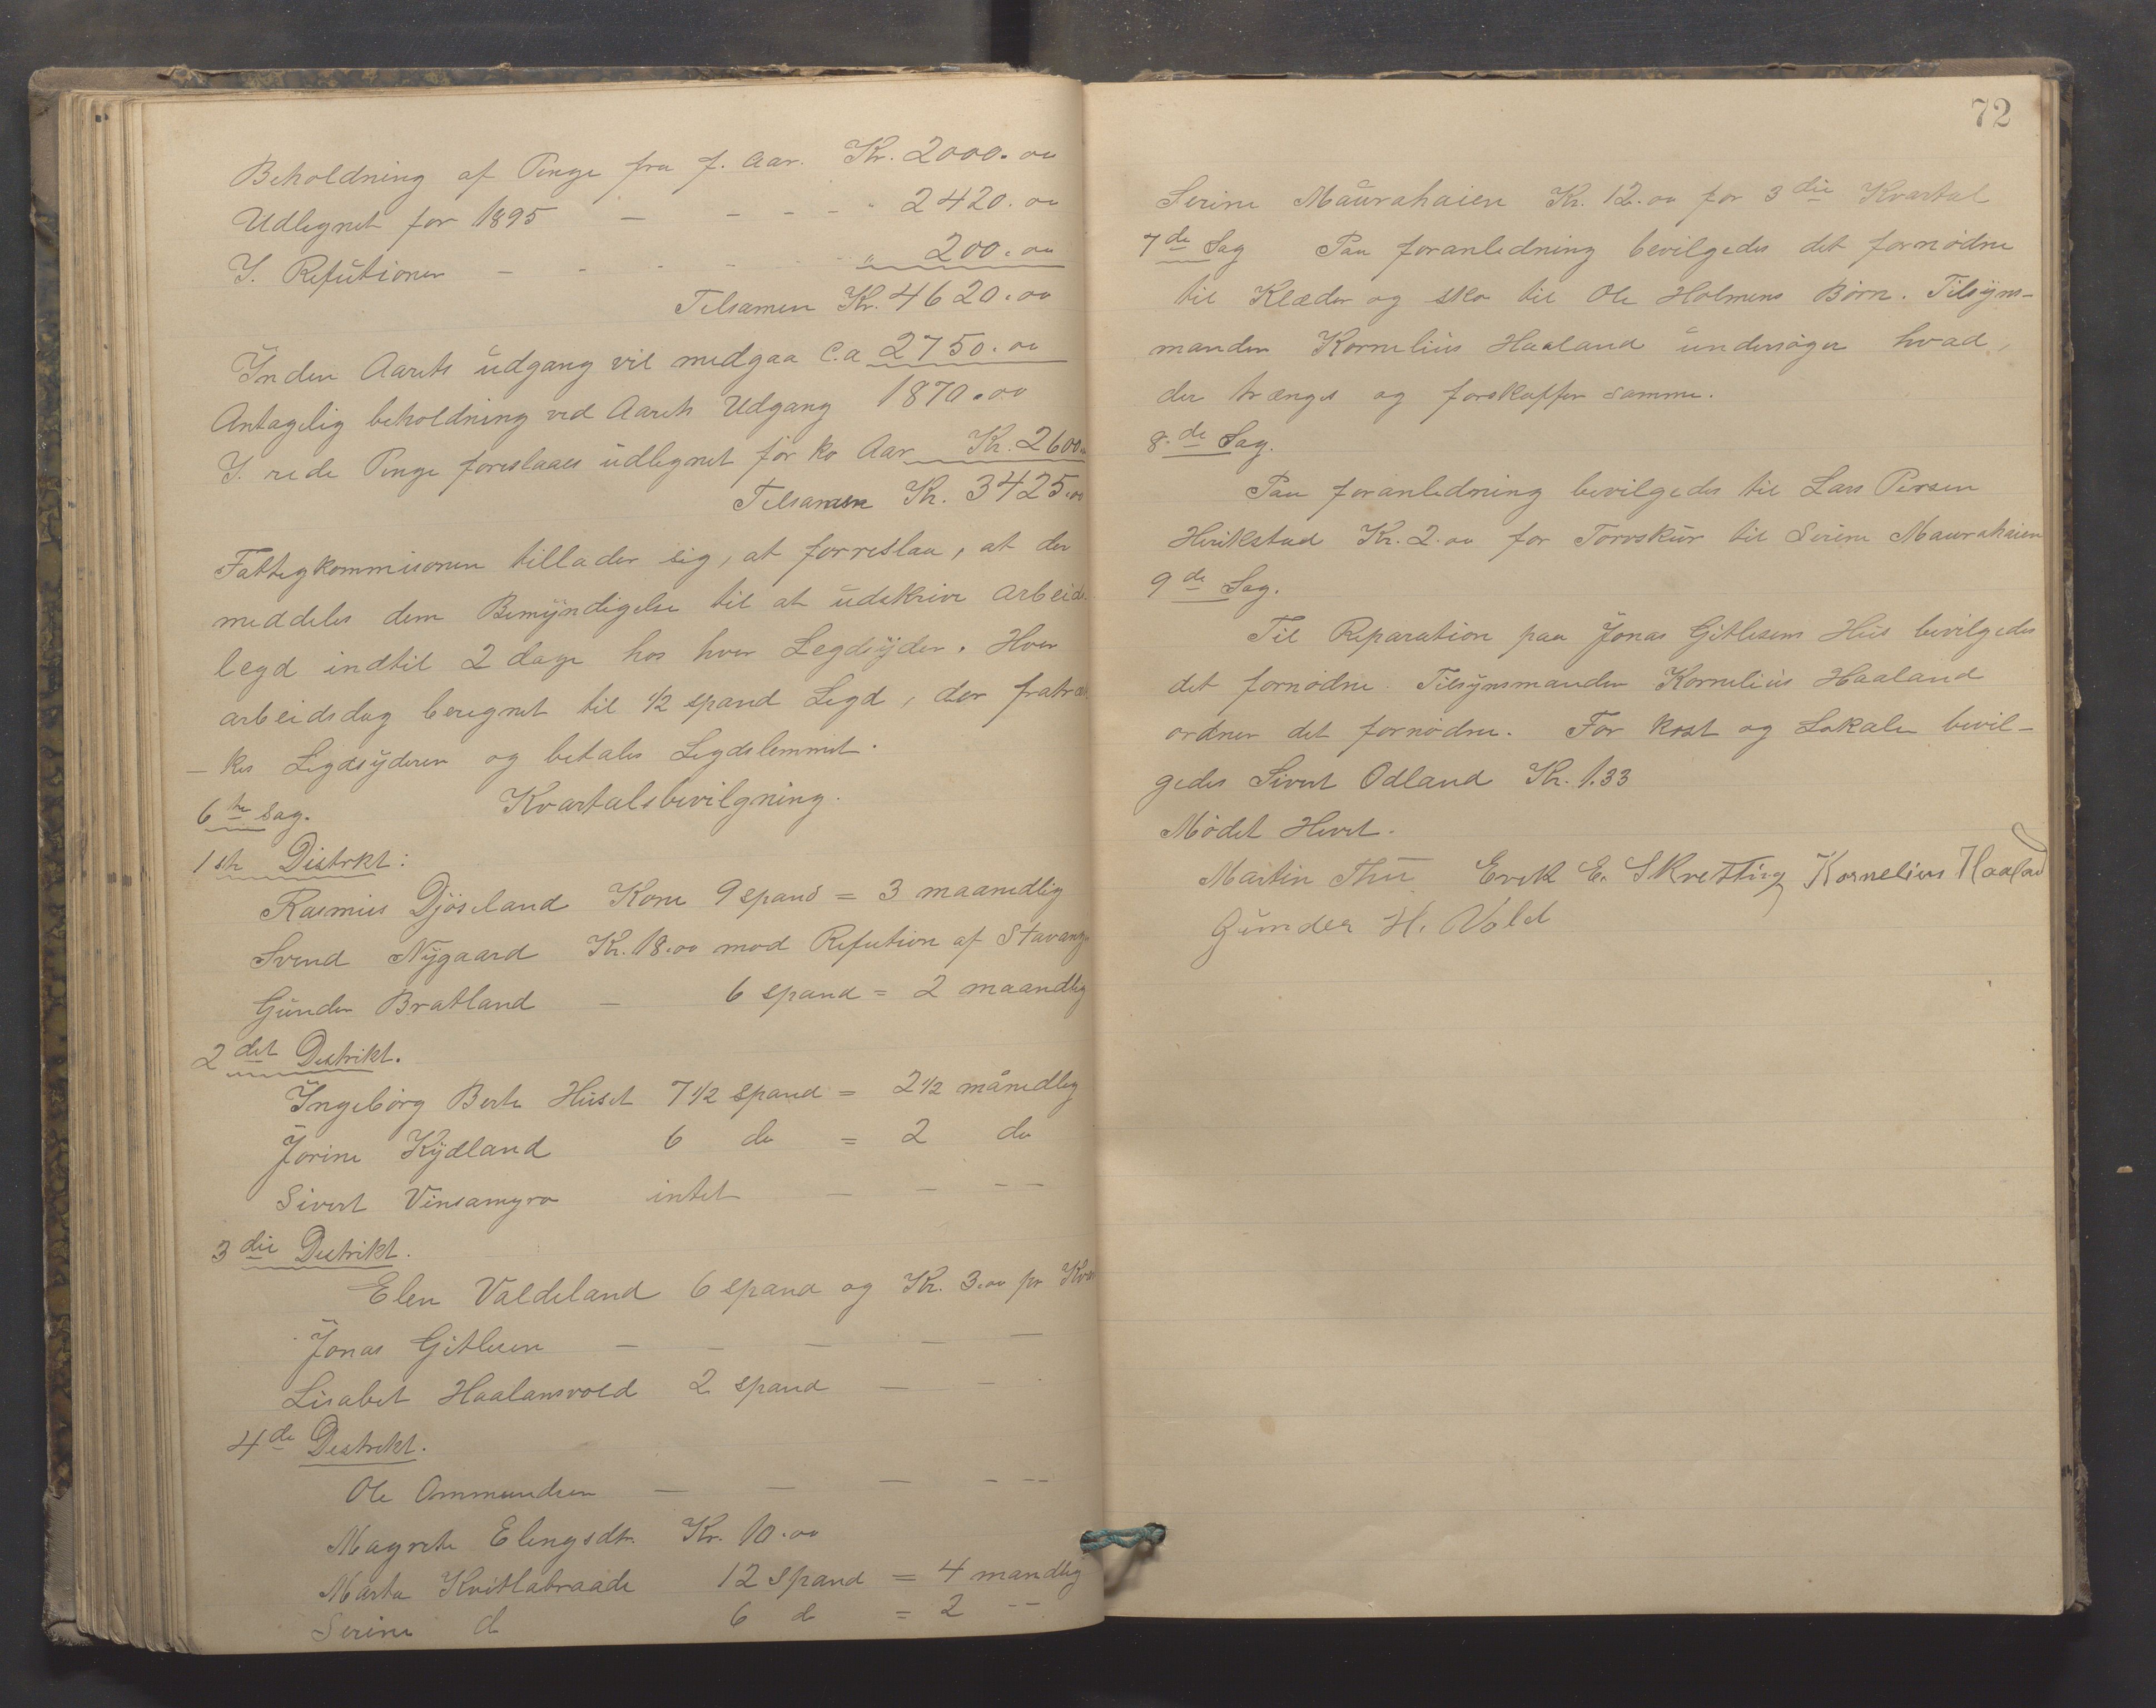 Beholdning af Penge fra f. Aar. Kr. 2000.00
Udlegnet for 1895 — - - - - " 2420.00
I. Refutioner — - - - - " 200.00
Tilsamen Kr. 4620.00
Inden Aarets Udgang vil medgaa C.a 2750.00
Antagelig beholdning ved Aarets Udgang 1870.00
I. rede Penge foreslaaes udlegnet for ko Aar Kr. 2600.
Tilsamen Kr. 3425.00
Fattigkommisonen tillader sig, at forreslaa, at der
meddeles dem Bemyndigelse til at udskrive arbeids-
legd indtil 2 dage hos hver Legdsyder. Hver
arbeidsdag beregnet til 1/2 spand Legd, der fratræk
-kes Legdsyderen og betales Legdslemmet.
6te Sag. Kvartalsbevilgning.
1ste Distrkt:
Rasmus Djøseland Korn 9 spand = 3 maanedlig
Svend Nygaard Kr. 18.00 mod Refution af Stavang
Gunder Bratland — 6 spand = 2 maandlig
2det Distrikt.
Ingeborg Berte Huset 7 1/2 spand = 2 1/2 månedlig
Jorine Kydland 6 do = 2 do
Sivert Vinsamyro intet — — - -
3die Distrikt.
Elen Valdeland 6 spand og Kr. 3.00 pr Kva
Jonas Gitlesen — — — — —
Lisabet Haalansvold 2 spand — -
4de Distrikt.
Ole Ommundsen — — — - --
Magrete Elengsdtr. Kr. 10.00
Marta Kvitlabraade 12 spand = 4 mandlig
Serine d 6 d = 2 --
72
Serine Maurahaien Kr. 12.00 for 3die Kvartal
7de Sag Paa foranledning bevilgedes det fornødne
til Klæder og sko til Ole Holmens Børn. Tilsyns-
manden Kornelius Haaland undersøger hvad
der trænges og forskaffer samme.
8.de Sag.
Paa foranledning bevilgedes til Lars Persen
Herikstad Kr. 2.00 for Torvskur til Serine Maurahaien
9de Sag.
Til Reparation paa Jonas Gitlesens Hus bevilgedes
det fornødne. Tilsynsmanden Kornelius Haaland
ordner det fornødne. For kost og Lokale bevil-
gedes Sivert Odland Kr. 1.33
Mødet Hevet.
Martin Thu Erik E. Skretting Kornelius Haaland
Gunder H. Vold